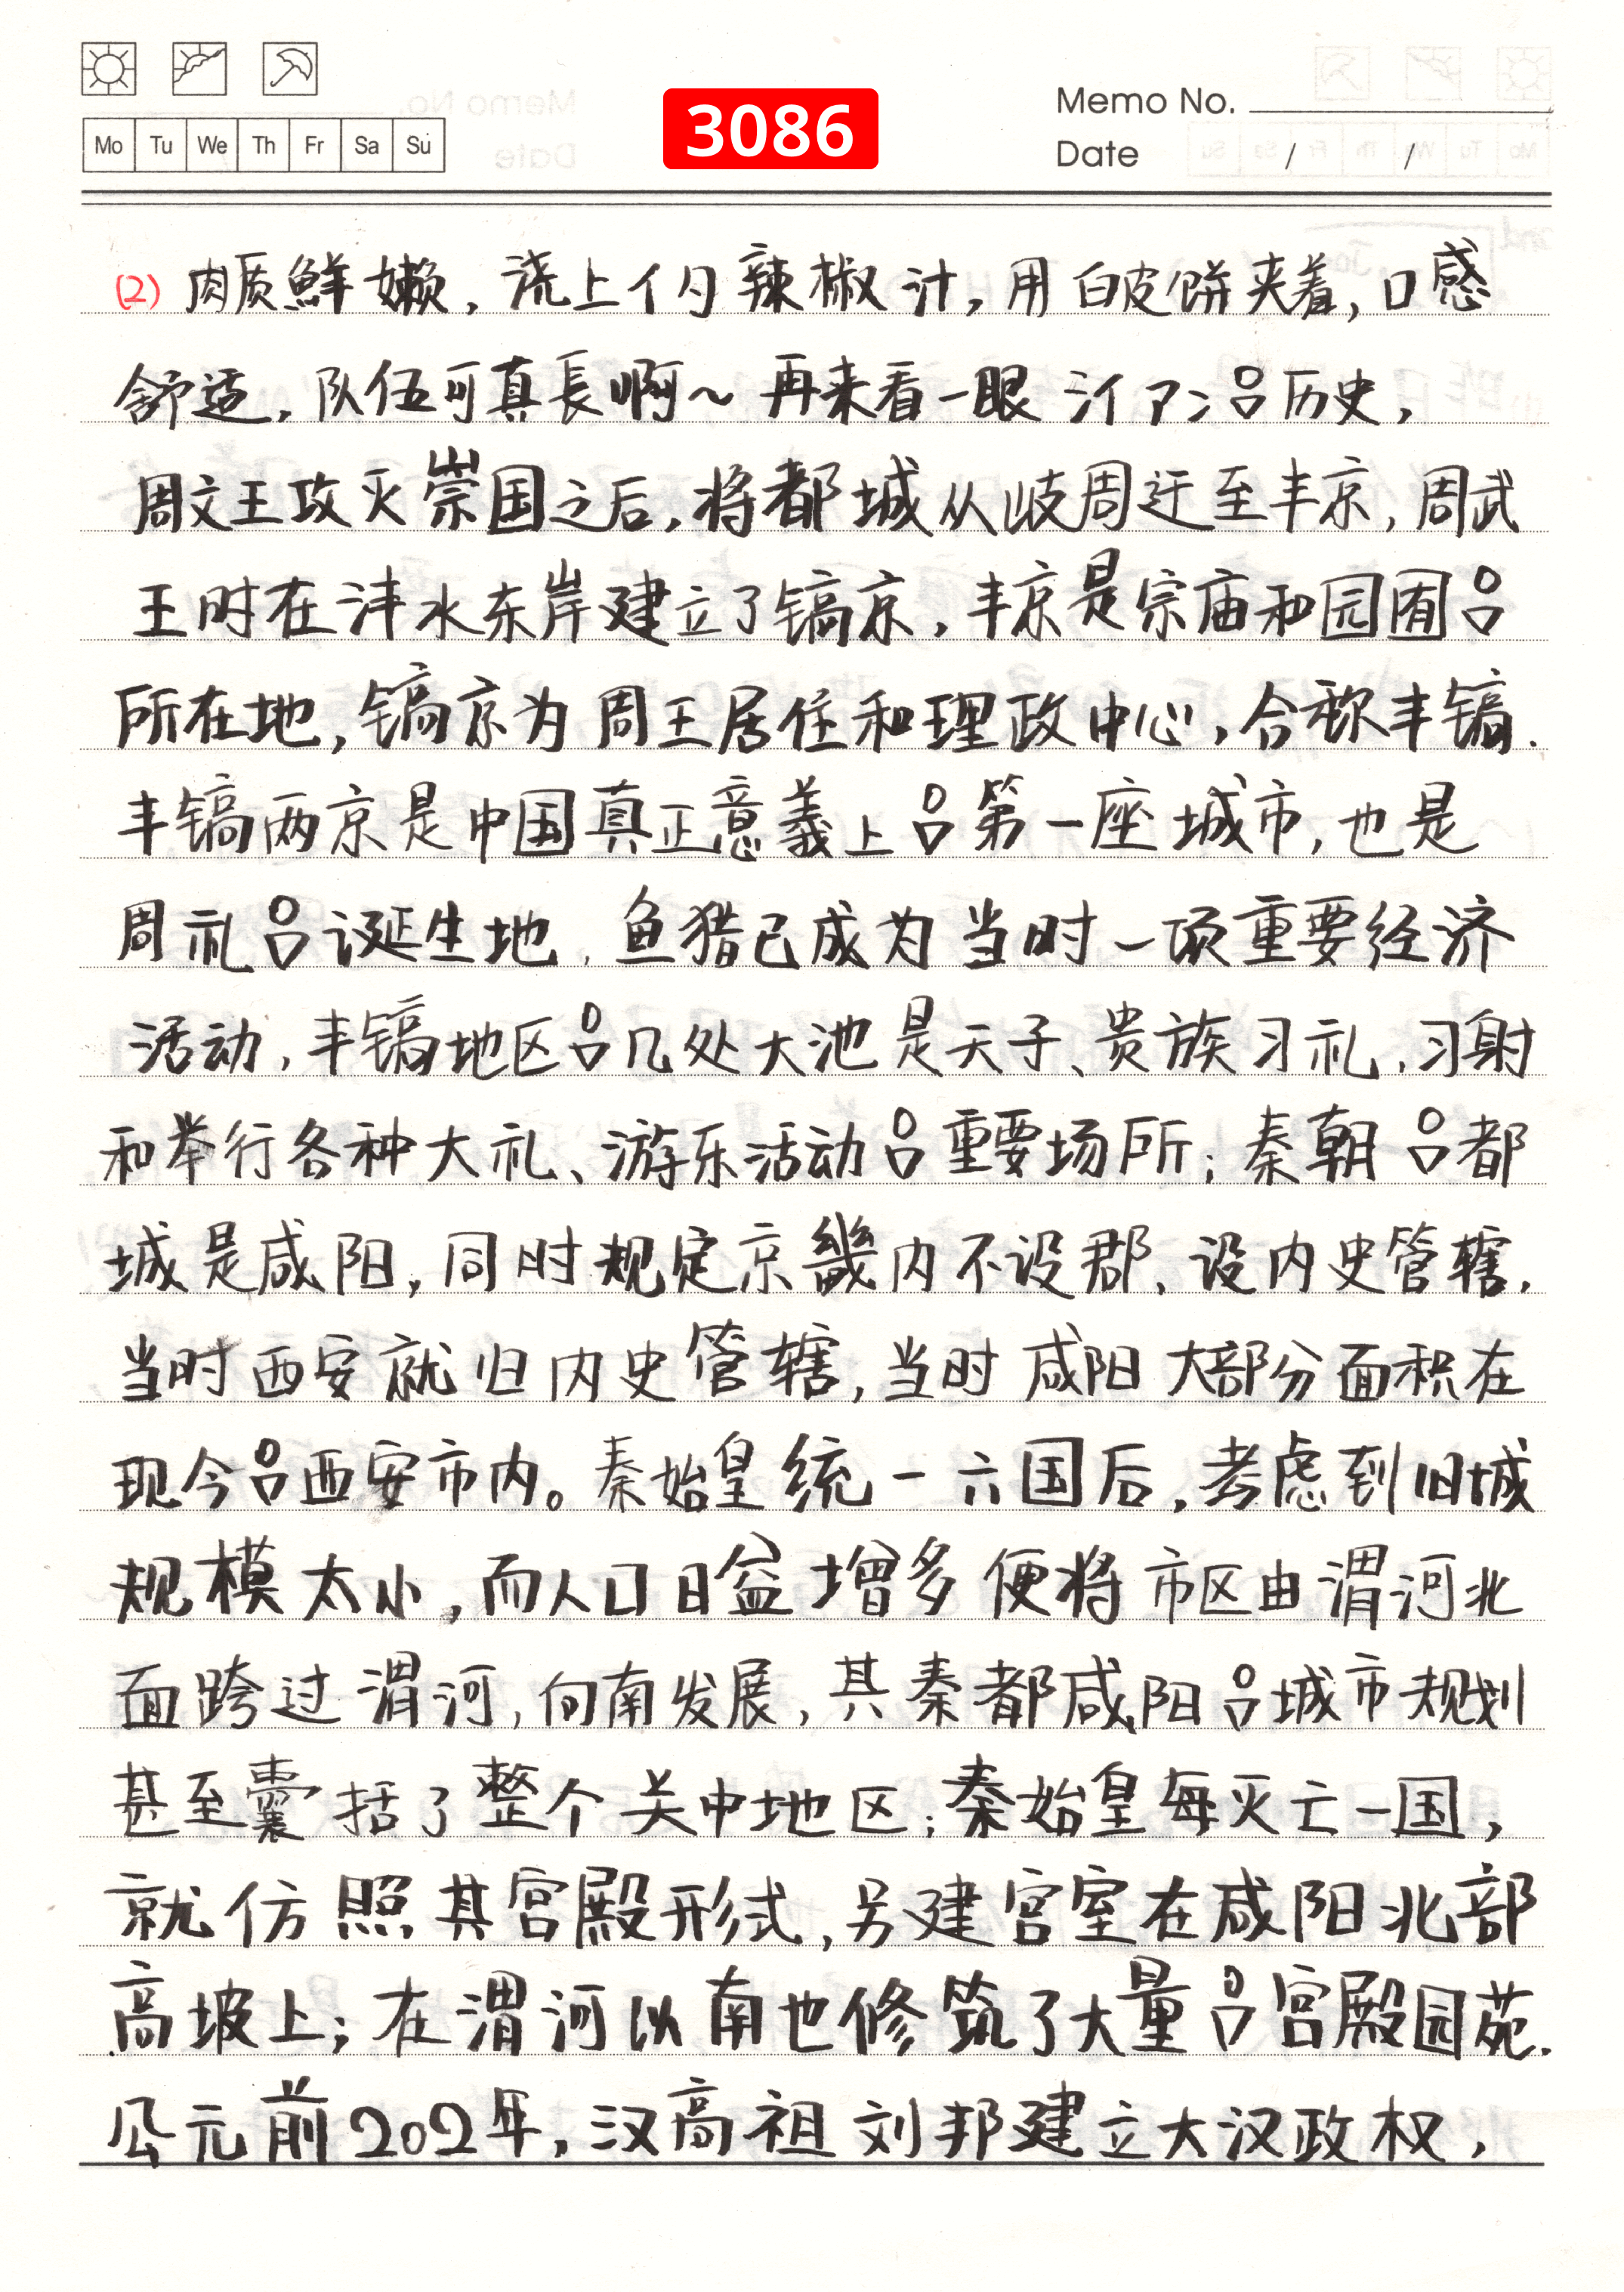 Mo Tu We Th Fr Sa Su
3086
Memo No.
Date / /
(2) 肉质鮮嫩，浇上辣椒汁，用白皮餅夹着，口感
舒适，队伍可真長啊～再来看一眼吕历史，
周文王攻灭崇国之后，将都城从岐周迁至丰京，周武
王时在沣水东岸建立了镐京，丰京是宗庙和园囿吕
所在地，镐京为周王居住和理政中心，合称丰镐.
丰镐两京是中国真正意義上吕第一座城市，也是
周礼吕诞生地，鱼猎已成为当时一项重要经济
活动，丰镐地区吕几处大池是天子、贵族习礼，习射
和举行各种大礼、游乐活动吕重要场所；秦朝吕都
城是咸阳，同时规定京畿内不设郡、设内史管辖，
当时西安就归内史管辖，当时咸阳大部分面积在
现今吕西安市内。秦始皇统一六国后，考虑到旧城
规模太小，而人口日益增多便将市区由渭河北
面跨过渭河，向南发展，其秦都咸阳吕城市规划
甚至囊括了整个关中地区；秦始皇每灭亡一国，
就仿照其宫殿形式，另建宫室在咸阳北部
高坡上；在渭河以南也修筑了大量吕宫殿园苑.
公元前202年，汉高祖刘邦建立大汉政权，